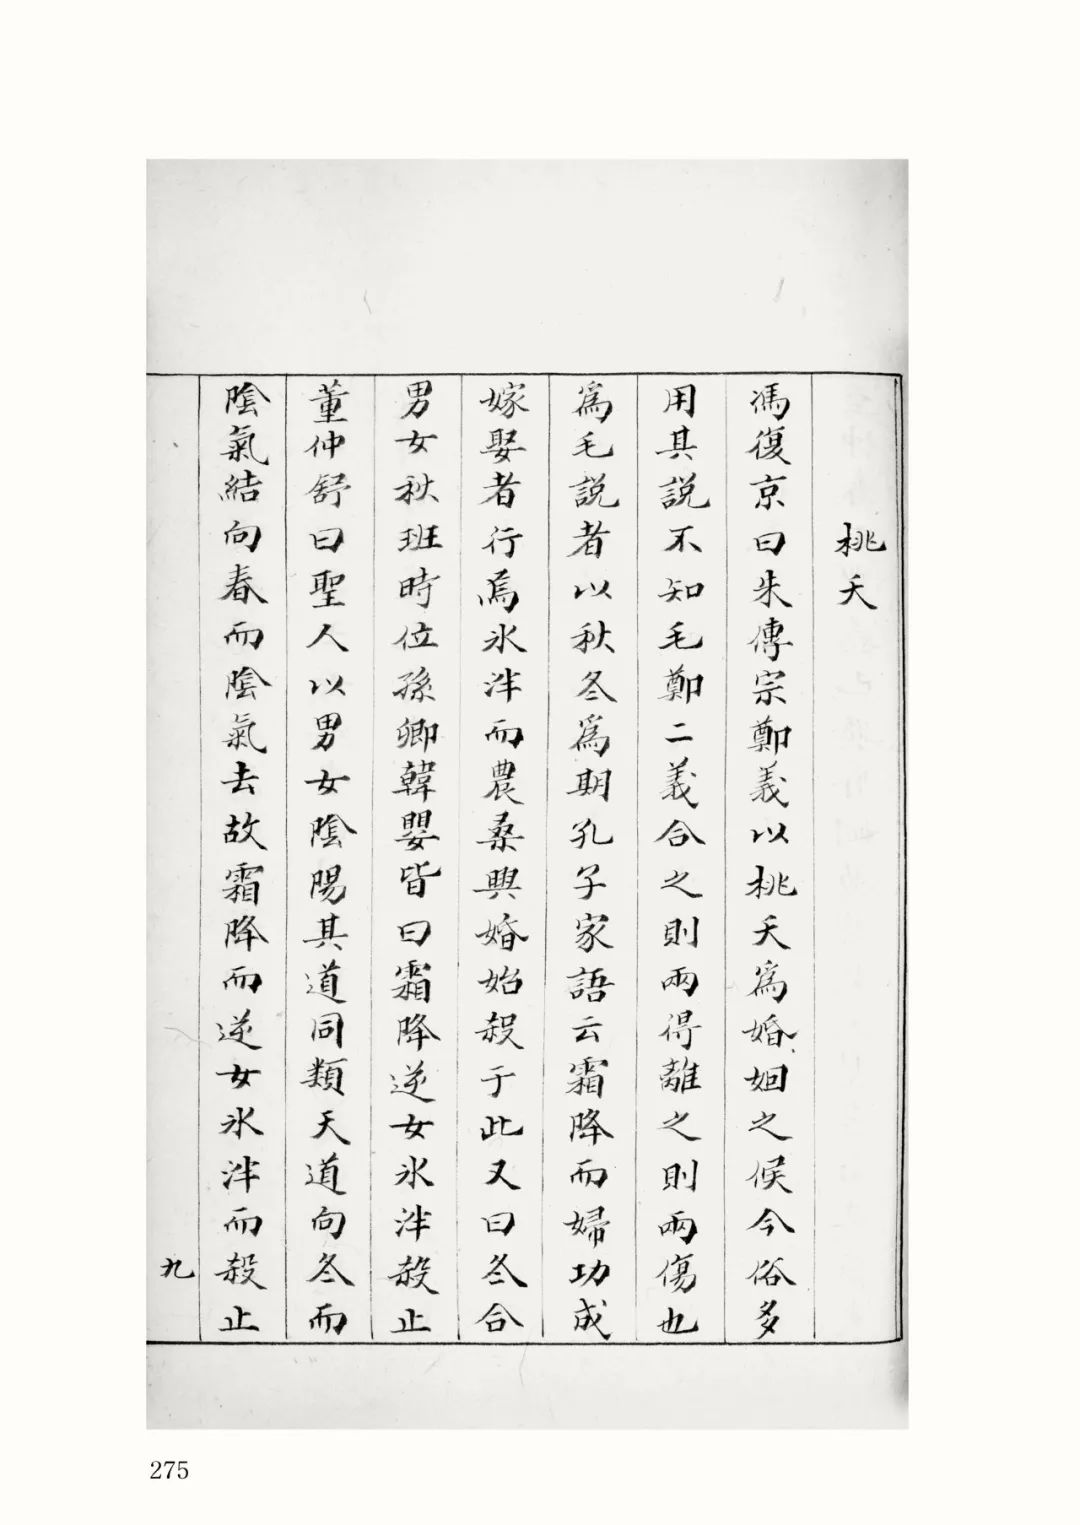 桃夭
馮復京曰朱傳宗鄭義以桃夭爲婚姻之候今俗多
用其説不知毛鄭二義合之則兩得離之則兩傷也
爲毛説者以秋冬爲期孔子家語云霜降而婦功成
嫁娶者行焉氷泮而農桑興婚始殺于此又曰冬合
男女秋班時位孫卿韓嬰皆曰霜降逆女氷泮殺止
董仲舒曰聖人以男女陰陽其道同類天道向冬而
陰氣結向春而陰氣去故霜降而逆女氷泮而殺止
九
275